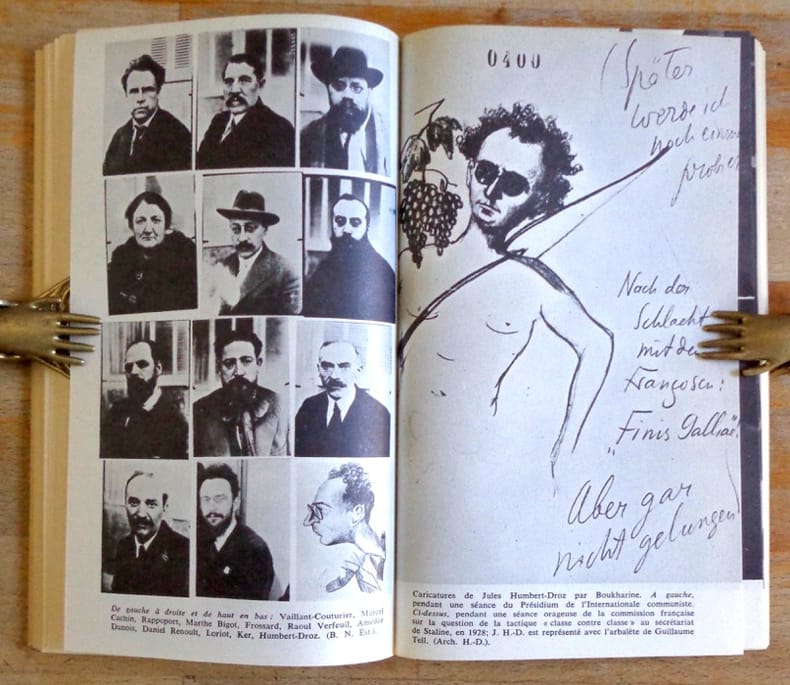 De gauche à droite et de haut en bas : Vaillant-Couturier, Marcel
Cachin, Rappoport, Marthe Bigot, Frossard, Raoul Verfeuil, Amédée
Dunois, Daniel Renoult, Loriot, Ker, Humbert-Droz. (B. N. Est.).
0400
(Später
werde ich
noch einmal
probieren
Nach der
Schlacht
mit den
Franzosen:
"Finis Galliae".
Aber gar
nicht gelungen
Caricatures de Jules Humbert-Droz par Boukharine. A gauche,
pendant une séance du Présidium de l'Internationale communiste.
Ci-dessus, pendant une séance orageuse de la commission française
sur la question de la tactique « classe contre classe » au secrétariat
de Staline, en 1928; J. H.-D. est représenté avec l'arbalète de Guillaume
Tell. (Arch. H.-D.).